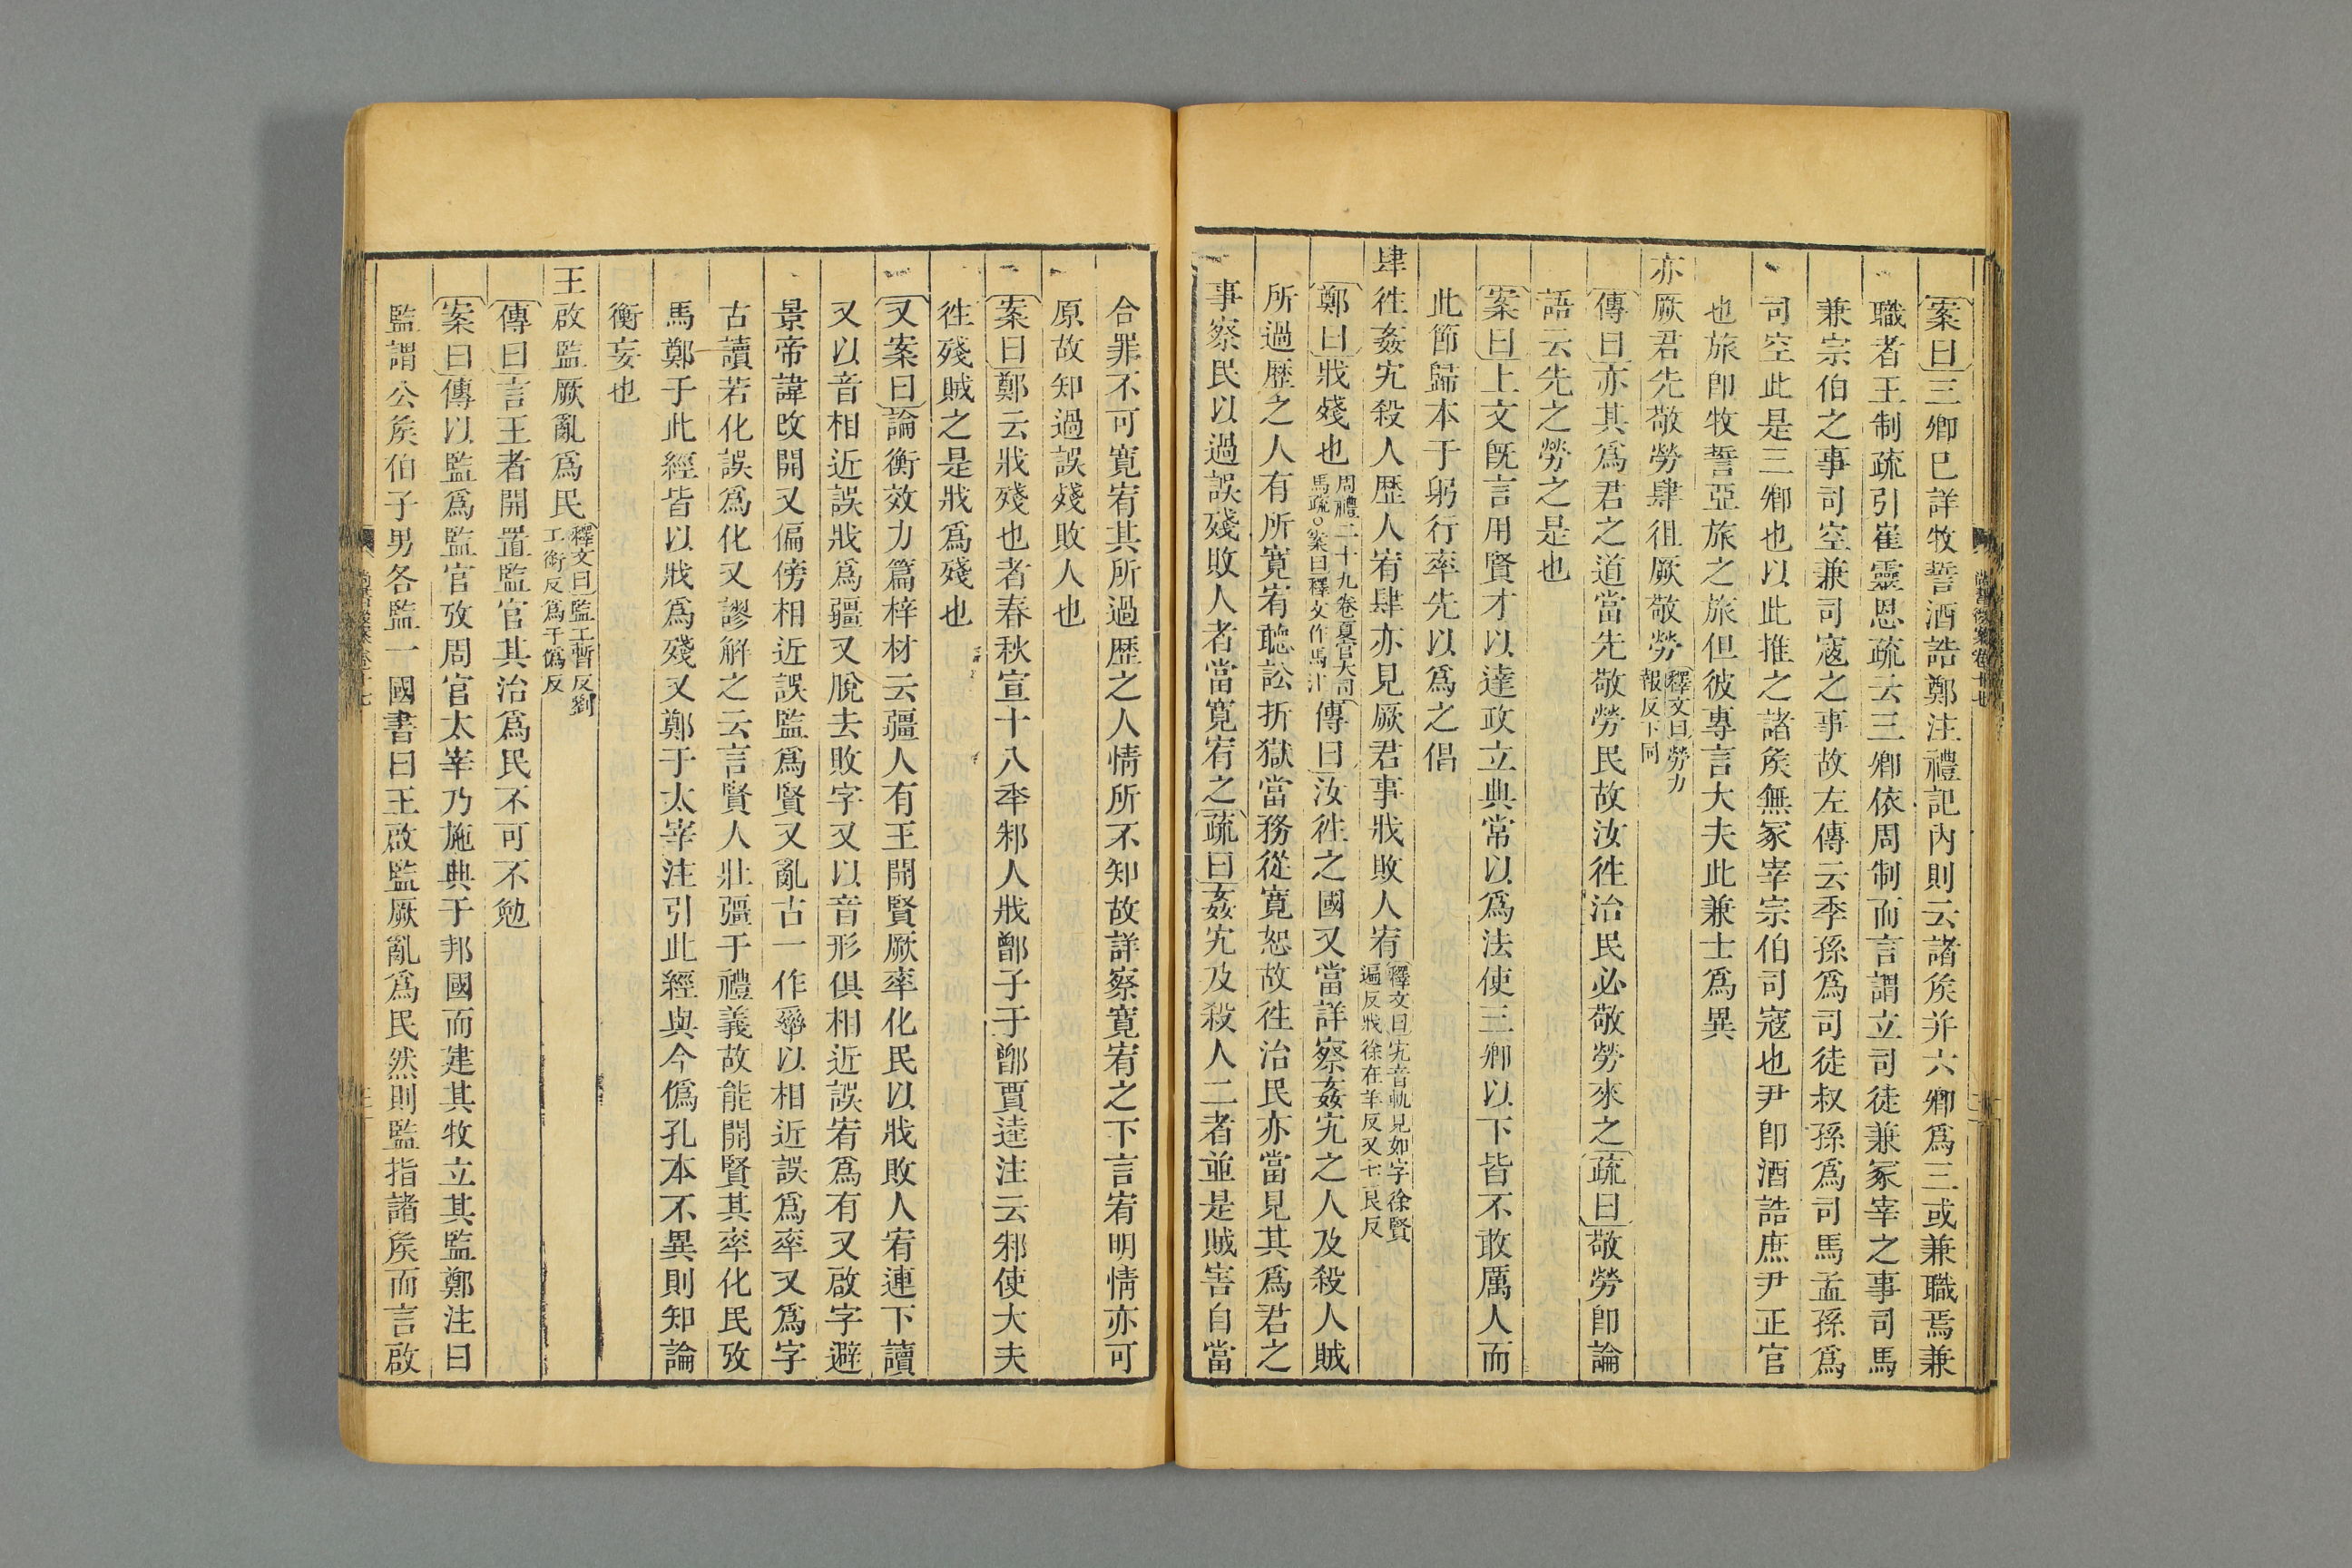 案曰三卿已詳牧誓酒誥鄭注禮記內則云諸矦并六卿爲三或兼職焉兼
職者王制疏引崔靈恩疏云三卿依周制而言謂立司徒兼冢宰之事司馬
兼宗伯之事司空兼司寇之事故左傳云季孫爲司徒叔孫爲司馬孟孫爲
司空此是三卿也以此推之諸矦無冢宰宗伯司寇也尹卽酒誥庶尹正官
也旅卽牧誓亞旅之旅但彼專言大夫此兼士爲異
亦厥君先敬勞肆徂厥敬勞釋文曰勞力報反下同
傳曰亦其爲君之道當先敬勞民故汝徃治民必敬勞來之疏曰敬勞卽論
語云先之勞之是也
案曰上文旣言用賢才以達政立典常以爲法使三卿以下皆不敢厲人而
此節歸本于躬行率先以爲之倡
肆徃姦宄殺人歷人宥肆亦見厥君事戕敗人宥釋文曰宄音軌見如字徐賢遍反戕徐在羊反又七良反
鄭曰戕殘也周禮二十九卷夏官大司馬疏○案曰釋文作馬注傳曰汝徃之國又當詳察姦宄之人及殺人賊
所過歷之人有所寬宥聽訟折獄當務從寬恕故徃治民亦當見其爲君之
事察民以過誤殘敗人者當寬宥之疏曰姦宄及殺人二者並是賊害自當
合罪不可寬宥其所過歷之人情所不知故詳察寬宥之下言宥明情亦可
原故知過誤殘敗人也
案曰鄭云戕殘也者春秋宣十八秊邾人戕鄫子于鄫賈逵注云邾使大夫
徃殘賊之是戕爲殘也
又案曰論衡效力篇梓材云彊人有王開賢厥率化民以戕敗人宥連下讀
又以音相近誤戕爲彊又脫去敗字又以音形俱相近誤宥爲有又啟字避
景帝諱改開又偏傍相近誤監爲賢又亂古一作𤔔以相近誤爲率又爲字
古讀若化誤爲化又謬解之云言賢人壯彊于禮義故能開賢其率化民攷
馬鄭于此經皆以戕爲殘又鄭于太宰注引此經與今僞孔本不異則知論
衡妄也
王啟監厥亂爲民釋文曰監工暫反劉工銜反爲于僞反
傳曰言王者開置監官其治爲民不可不勉
案曰傳以監爲監官攷周官太宰乃施典于邦國而建其牧立其監鄭注曰
監謂公矦伯子男各監一國書曰王啟監厥亂爲民然則監指諸矦而言啟